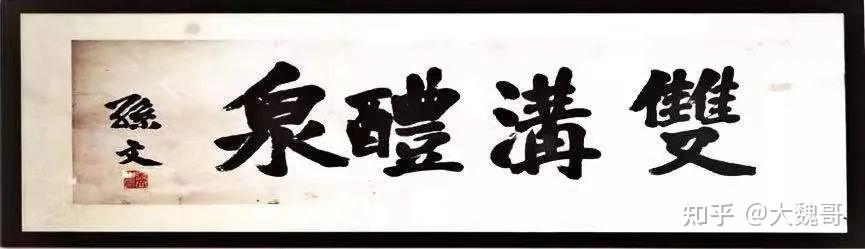 雙溝醴泉
孫文
知乎 @大魏哥